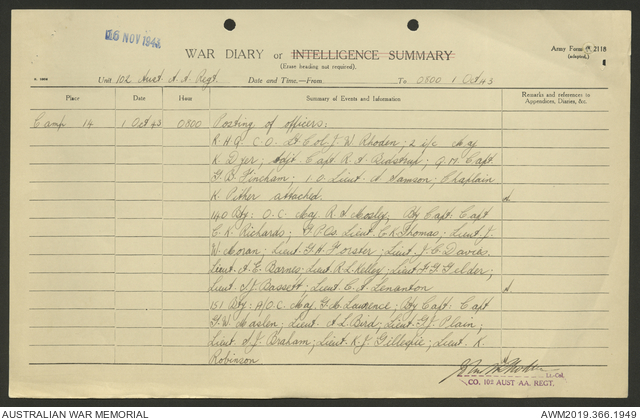 26 NOV 1943
WAR DIARY or INTELLIGENCE SUMMARY
Army Form C. 2118
(adapted.)
(Erase heading not required).
Unit 102 Aust A A Regt. Date and Time.—From To 0800 1 Oct 43
Place Date Hour Summary of Events and Information Remarks and references to
Appendices, Diaries, &c.
Camp 14 1 Oct 43 0800 Posting of officers:
R.H.Q. C.O. Lt Col J. W. Rhoden; 2 i/c Maj
K Dyer; Adjt Capt R. A. ; Q.M. Capt
G. B. Fincham; I.O. Lieut A Samson; Chaplain
K. Pither attached.
140 Bty: O.C. Maj. R. Mosley, Bty Capt. Capt
C. K. Richards; G.P.Os Lieut. E. K. Thomas; Lieut J.
W. Moran; Lieut. G. H. Forster; Lieut. J. C. Davies.
Lieut. A. E. Barnes; Lieut. R. L. Kelley; Lieut F. G. Gelder;
Lieut N. J. Bassett; Lieut. C. A. Lenanton
151 Bty: A/O.C. Maj. G. M. Lawrence; Bty Capt. Capt
G. W. Maslen; Lieut. A L Bird; Lieut. G. J. Plain;
Lieut N. J. Braham; Lieut. K. J. Gillespie; Lieut. K
Robinson.
Lt.-Col.
CO. 102 AUST AA. REGT.
AUSTRALIAN WAR MEMORIAL
AWM2019.366.1949